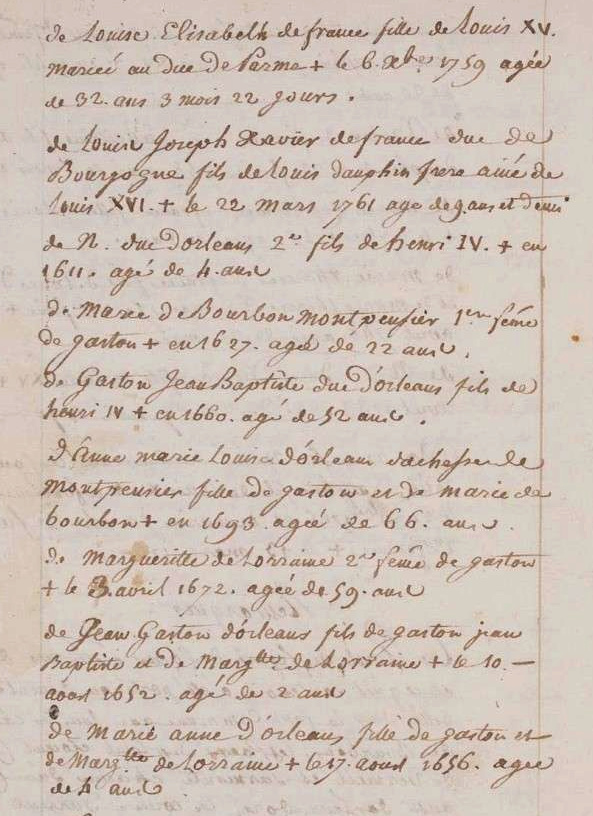 de Louise Elisabeth de france fille de Louis XV.
mariée au duc de Parme + le 6. xbre 1759 agée
de 32. ans 3 mois 22 jours.
de Louis Joseph Xavier de france duc de
Bourgogne fils de Louis dauphin frere ainé de
Louis XVI. + le 22 mars 1761 age de 9. ans et demi
de N. duc d'orleans 2e fils de henri IV. + en
1611. agé de 4. ans
de Marie de Bourbon montpensier 1ere feme
de gaston + en 1627. agée de 22 ans.
de Gaston Jean Baptiste duc d'orleans fils de
henri IV + en 1660. agé de 52 ans.
d'Anne marie Louise d'órleans duchesse de
montpensier fille de gaston et de marie de
bourbon + en 1693 agée de 66. ans.
de Margueritte de Lorraine 2e feme de gaston
+ le 3. avril 1672. agée de 59. ans
de Jean Gaston d'órleans fils de gaston jean
Baptiste et de Margtte de Lorraine + le 10. —
aoust 1652. agé de 2 ans
de Marie anne D'orleans fille de gaston et
de Margtte de Lorraine + le 17. aoust 1656. agée
de 4 ans